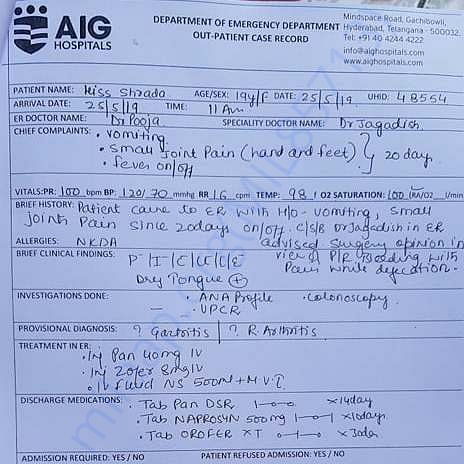 AIG
HOSPITALS
DEPARTMENT OF EMERGENCY DEPARTMENT
OUT-PATIENT CASE RECORD
Mindspace Road, Gachibowli,
Hyderabad, Telangana - 500032.
Tel: +91 40 4244 4222
info@aighospitals.com
www.aighospitals.com
PATIENT NAME: Miss Shrada AGE/SEX: 19y/F DATE: 25/5/19 UHID: 48554
ARRIVAL DATE: 25/5/19 TIME: 11 Am
ER DOCTOR NAME: Dr Pooja SPECIALITY DOCTOR NAME: Dr Jagadish
CHIEF COMPLAINTS: • vomiting
• Small Joint Pain (hand and feet) } 20 days
• fever on/off
VITALS: PR: 100 bpm BP: 120/70 mmhg RR 16 cpm TEMP: 98 f O2 SATURATION: 100 (RA/O2 L/min
BRIEF HISTORY: Patient came to ER with H/o- vomiting, small
joints Pain since 20days on/off. C/S/B Dr Jagadish in ER
ALLERGIES: NKDA advised surgery opinion in
BRIEF CLINICAL FINDINGS: view of P/R Bleeding with
Pain while defecation.
Dry Tongue (+)
INVESTIGATIONS DONE: • ANA Profile • Colonoscopy
• UPCR
PROVISIONAL DIAGNOSIS: ? Gastritis ? R. Arthritis
TREATMENT IN ER:
• Inj Pan 40mg IV
• Inj Zofer 8mg IV
• IV Fluid NS 500ml + M.V.I
DISCHARGE MEDICATIONS: • Tab Pan DSR x14day
• Tab NAPROSYN 500mg x10days
• Tab OROFER XT
ADMISSION REQUIRED: YES / NO PATIENT REFUSED ADMISSION: YES / NO